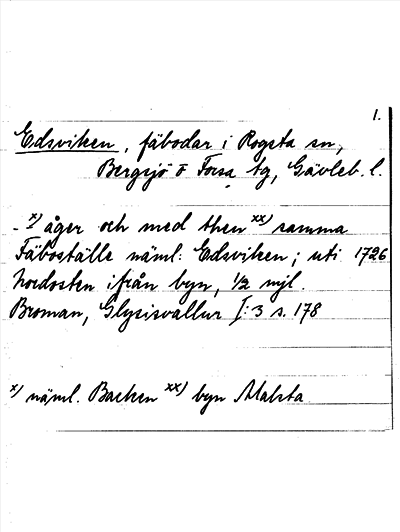 1.
Edsviken, fäbodar i Rogsta sn,
Bergsjö o Forsa tg, Gävleb. l.
- x) äger och med then xx) samma
Fäboställe näml: Edsviken; uti 1726
Nordosten ifrån byn, 1/2 mjl.
Broman, Glysisvallur I:3 s. 178
x) näml. Backen xx) byn Malsta